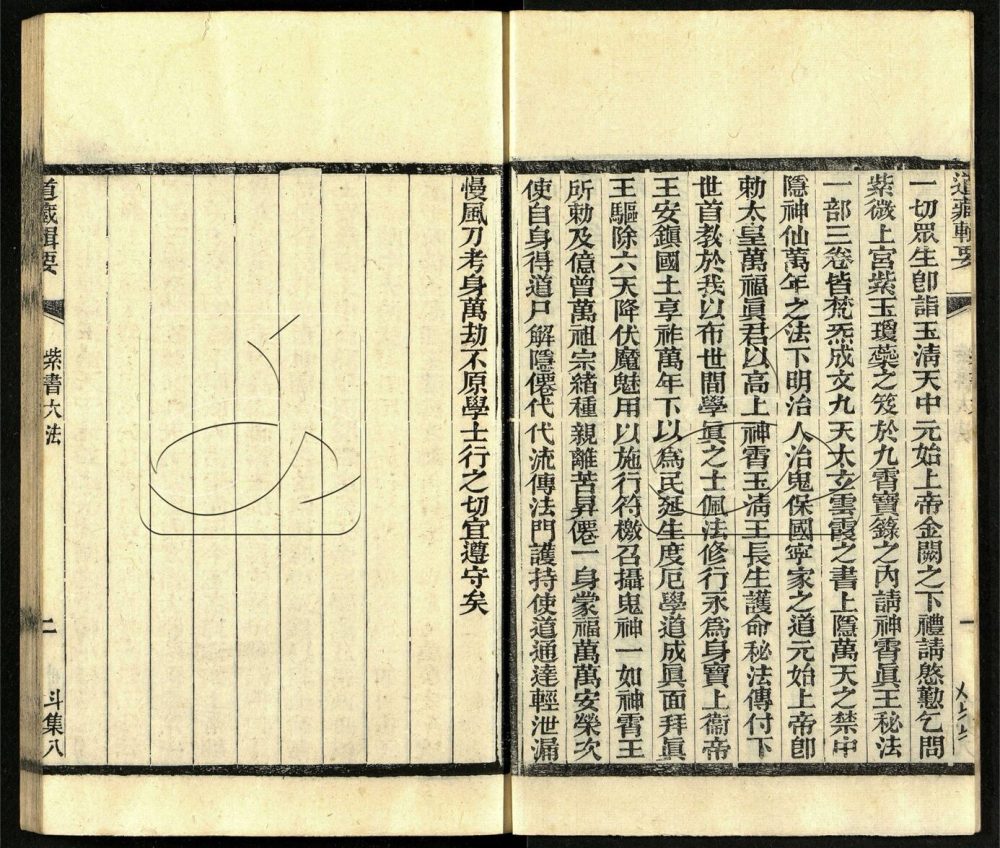 道藏輯要
一切眾生卽詣玉清天中元始上帝金闕之下禮請慇懃乞問
紫微上宮紫玉瓊蘂之笈於九霄寶籙之內請神霄眞王秘法
一部三卷皆梵炁成文九天太玄雲霞之書上隱萬天之禁中
隱神仙萬年之法下明治人治鬼保國寧家之道元始上帝卽
勅太皇萬福眞君以高上神霄玉淸王長生護命秘法傳付下
世首教於我以布世間學眞之士佩法修行永爲身寶上衞帝
王安鎭國土享祚萬年下以爲民延生度厄學道成眞面拜眞
王驅除六天降伏魔魅用以施行符檄召攝鬼神一如神霄王
所勅及億曾萬祖宗緒種親離苦昇僊一身蒙福萬萬安榮次
使自身得道尸解隱僊代代流傳法門護持使道通達輕泄漏
慢風刀考身萬劫不原學士行之切宜遵守矣
道藏輯要
紫書大法
二
斗集八